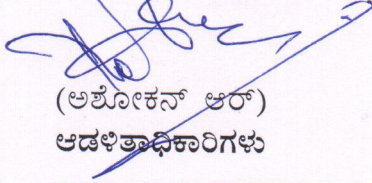 (ಅಶೋಕನ್ ಆರ್)
ಆಡಳಿತಾಧಿಕಾರಿಗಳು